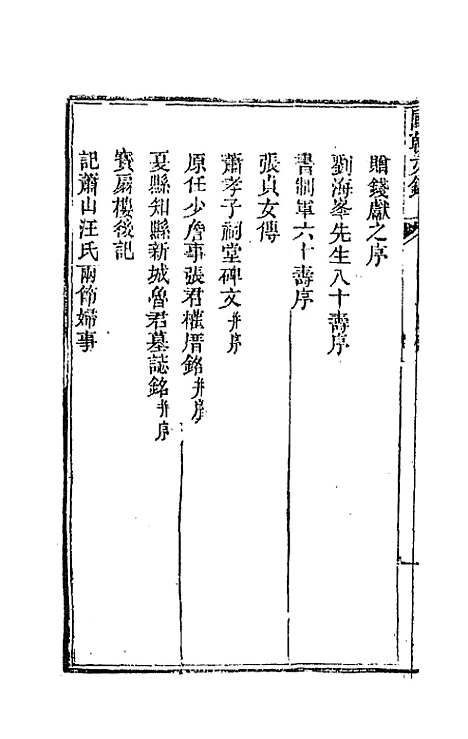 贈錢獻之序
劉海峯先生八十壽序
書制軍六十壽序
張貞女傳
蕭孝子祠堂碑文并序
原任少詹事張君權厝銘并序
夏縣知縣新城魯君墓誌銘并序
寶扇樓後記
記蕭山汪氏兩節婦事